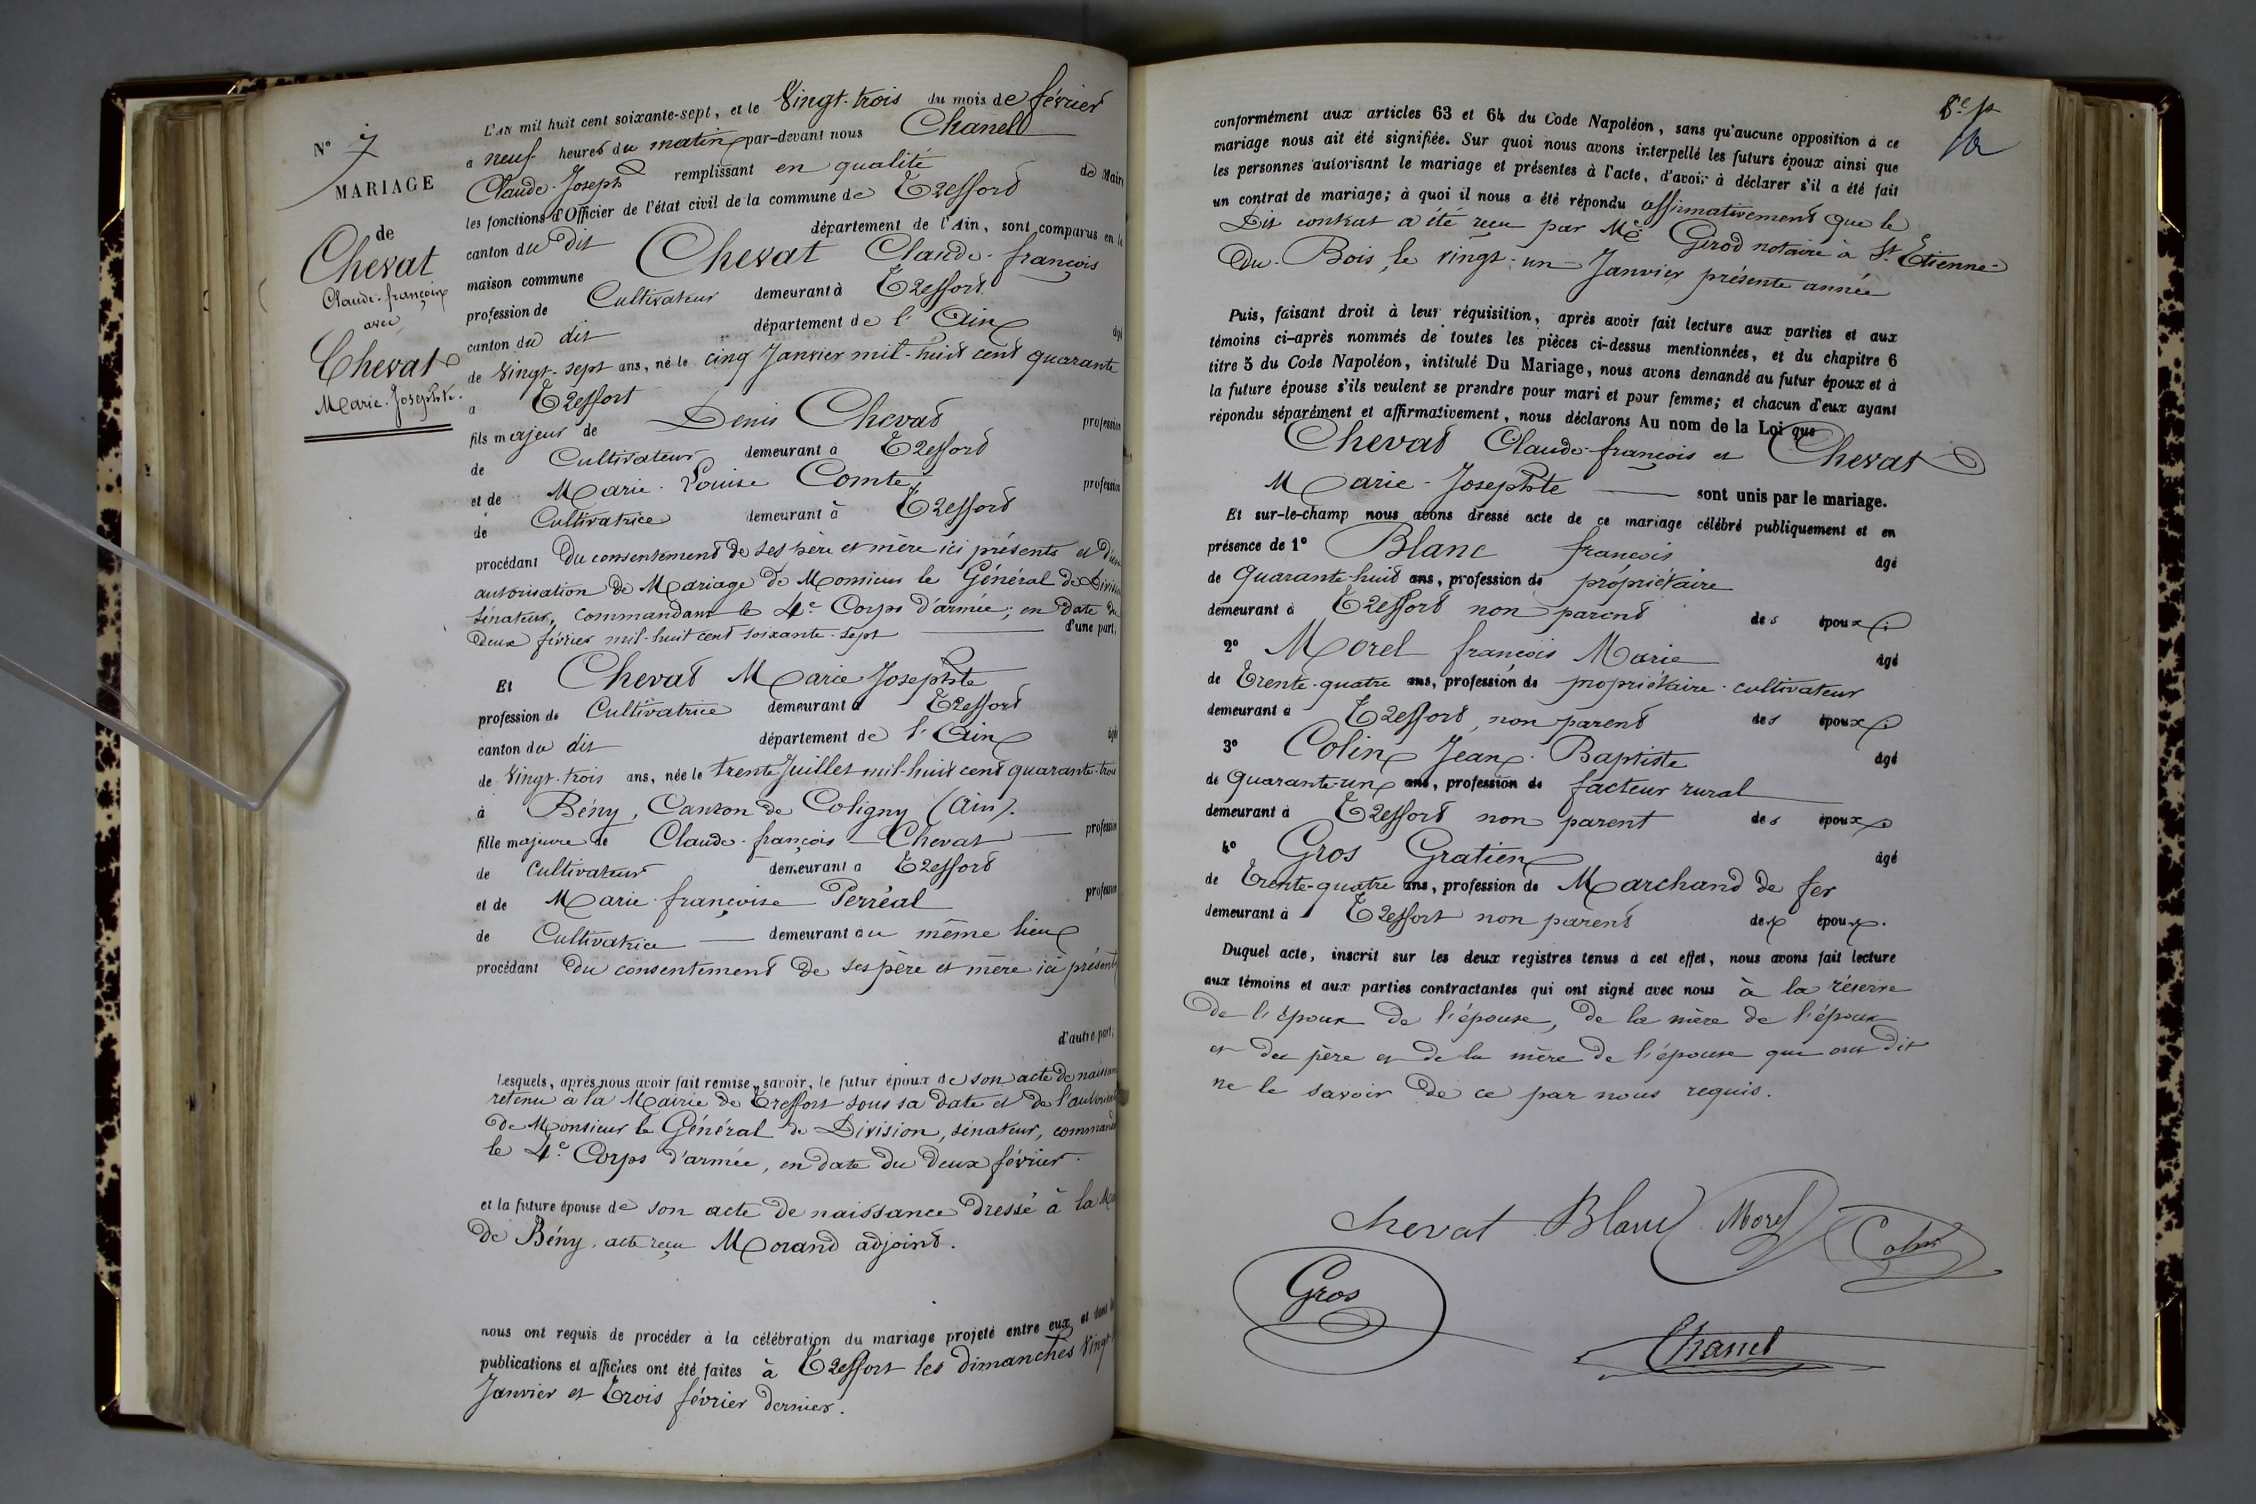 N° 7
MARIAGE
de
Chevat
Claude-françois
avec
Chevat
Marie-Josephte.
L'AN mil huit cent soixante-sept, et le Vingt-trois du mois de février
à neuf heures du matin par-devant nous Chanel
Claude-Joseph remplissant en qualité de Maire
les fonctions d'Officier de l'état civil de la commune de Treffort
canton du dit département de l'Ain, sont comparus en la
maison commune Chevat Claude-françois
profession de Cultivateur demeurant à Treffort
canton du dit département de l'Ain âgé
de vingt-sept ans, né le cinq Janvier mil-huit cent quarante
à Treffort
fils majeur de Denis Chevat profession
de Cultivateur demeurant à Treffort
et de Marie-Louise Comte, profession
de Cultivatrice demeurant à Treffort
procédant du consentement de ses père et mère ici présents et d'une
autorisation de Mariage de Monsieur le Général de Division
sénateur, commandant le 4e Corps d'armée, en date du
deux février mil-huit cent soixante-sept d'une part,
Et Chevat Marie Josephte
profession de Cultivatrice demeurant à Treffort
canton du dit département de l'Ain âgée
de vingt-trois ans, née le trente Juillet mil-huit cent quarante-trois
à Bény, Canton de Coligny (Ain).
fille majeure de Claude-françois Chevat profession
de Cultivateur demeurant à Treffort
et de Marie-françoise Perréal profession
de Cultivatrice demeurant au même lieu
procédant du consentement de ses père et mère ici présents
d'autre part;
Lesquels, après nous avoir fait remise, savoir, le futur époux de son acte de naissance
retenu à la Mairie de Treffort sous sa date et de l'autorisation
de Monsieur le Général de Division, sénateur, commandant
le 4e Corps d'armée, en date du deux février.
et la future épouse de son acte de naissance dressé à la
de Bény, acte reçu Morand adjoint.
nous ont requis de procéder à la célébration du mariage projeté entre eux, et dont les
publications et affiches ont été faites à Treffort les dimanches Vingt-
Janvier et Trois février dernier.
conformément aux articles 63 et 64 du Code Napoléon, sans qu'aucune opposition à ce
mariage nous ait été signifiée. Sur quoi nous avons interpellé les futurs époux ainsi que
les personnes autorisant le mariage et présentes à l'acte, d'avoir à déclarer s'il a été fait
un contrat de mariage; à quoi il nous a été répondu affirmativement que le
Dit contrat a été reçu par Me Girod notaire à St Etienne-
du-Bois, le vingt-un Janvier présente année
Puis, faisant droit à leur réquisition, après avoir fait lecture aux parties et aux
témoins ci-après nommés de toutes les pièces ci-dessus mentionnées, et du chapitre 6
titre 5 du Code Napoléon, intitulé Du Mariage, nous avons demandé au futur époux et à
la future épouse s'ils veulent se prendre pour mari et pour femme; et chacun d'eux ayant
répondu séparément et affirmativement, nous déclarons Au nom de la Loi que
Chevat Claude-françois et Chevat
Marie-Josephte sont unis par le mariage.
Et sur-le-champ nous avons dressé acte de ce mariage célébré publiquement et en
présence de 1° Blanc françois âgé
de Quarante-huit ans, profession de propriétaire
demeurant à Treffort non parent des époux
2° Morel françois Marie âgé
de Trente-quatre ans, profession de propriétaire-cultivateur
demeurant à Treffort, non parent des époux
3° Colin Jean-Baptiste âgé
de Quarante-un ans, profession de facteur rural
demeurant à Treffort non parent des époux
4° Gros Gratien âgé
de Trente-quatre ans, profession de Marchand de fer
demeurant à Treffort non parent des époux.
Duquel acte, inscrit sur les deux registres tenus à cet effet, nous avons fait lecture
aux témoins et aux parties contractantes qui ont signé avec nous à la réserve
de l'époux de l'épouse, de la mère de l'époux
et du père et de la mère de l'épouse qui ont dit
ne le savoir de ce par nous requis.
chevat Blanc Morel Colin
Gros
Chanel